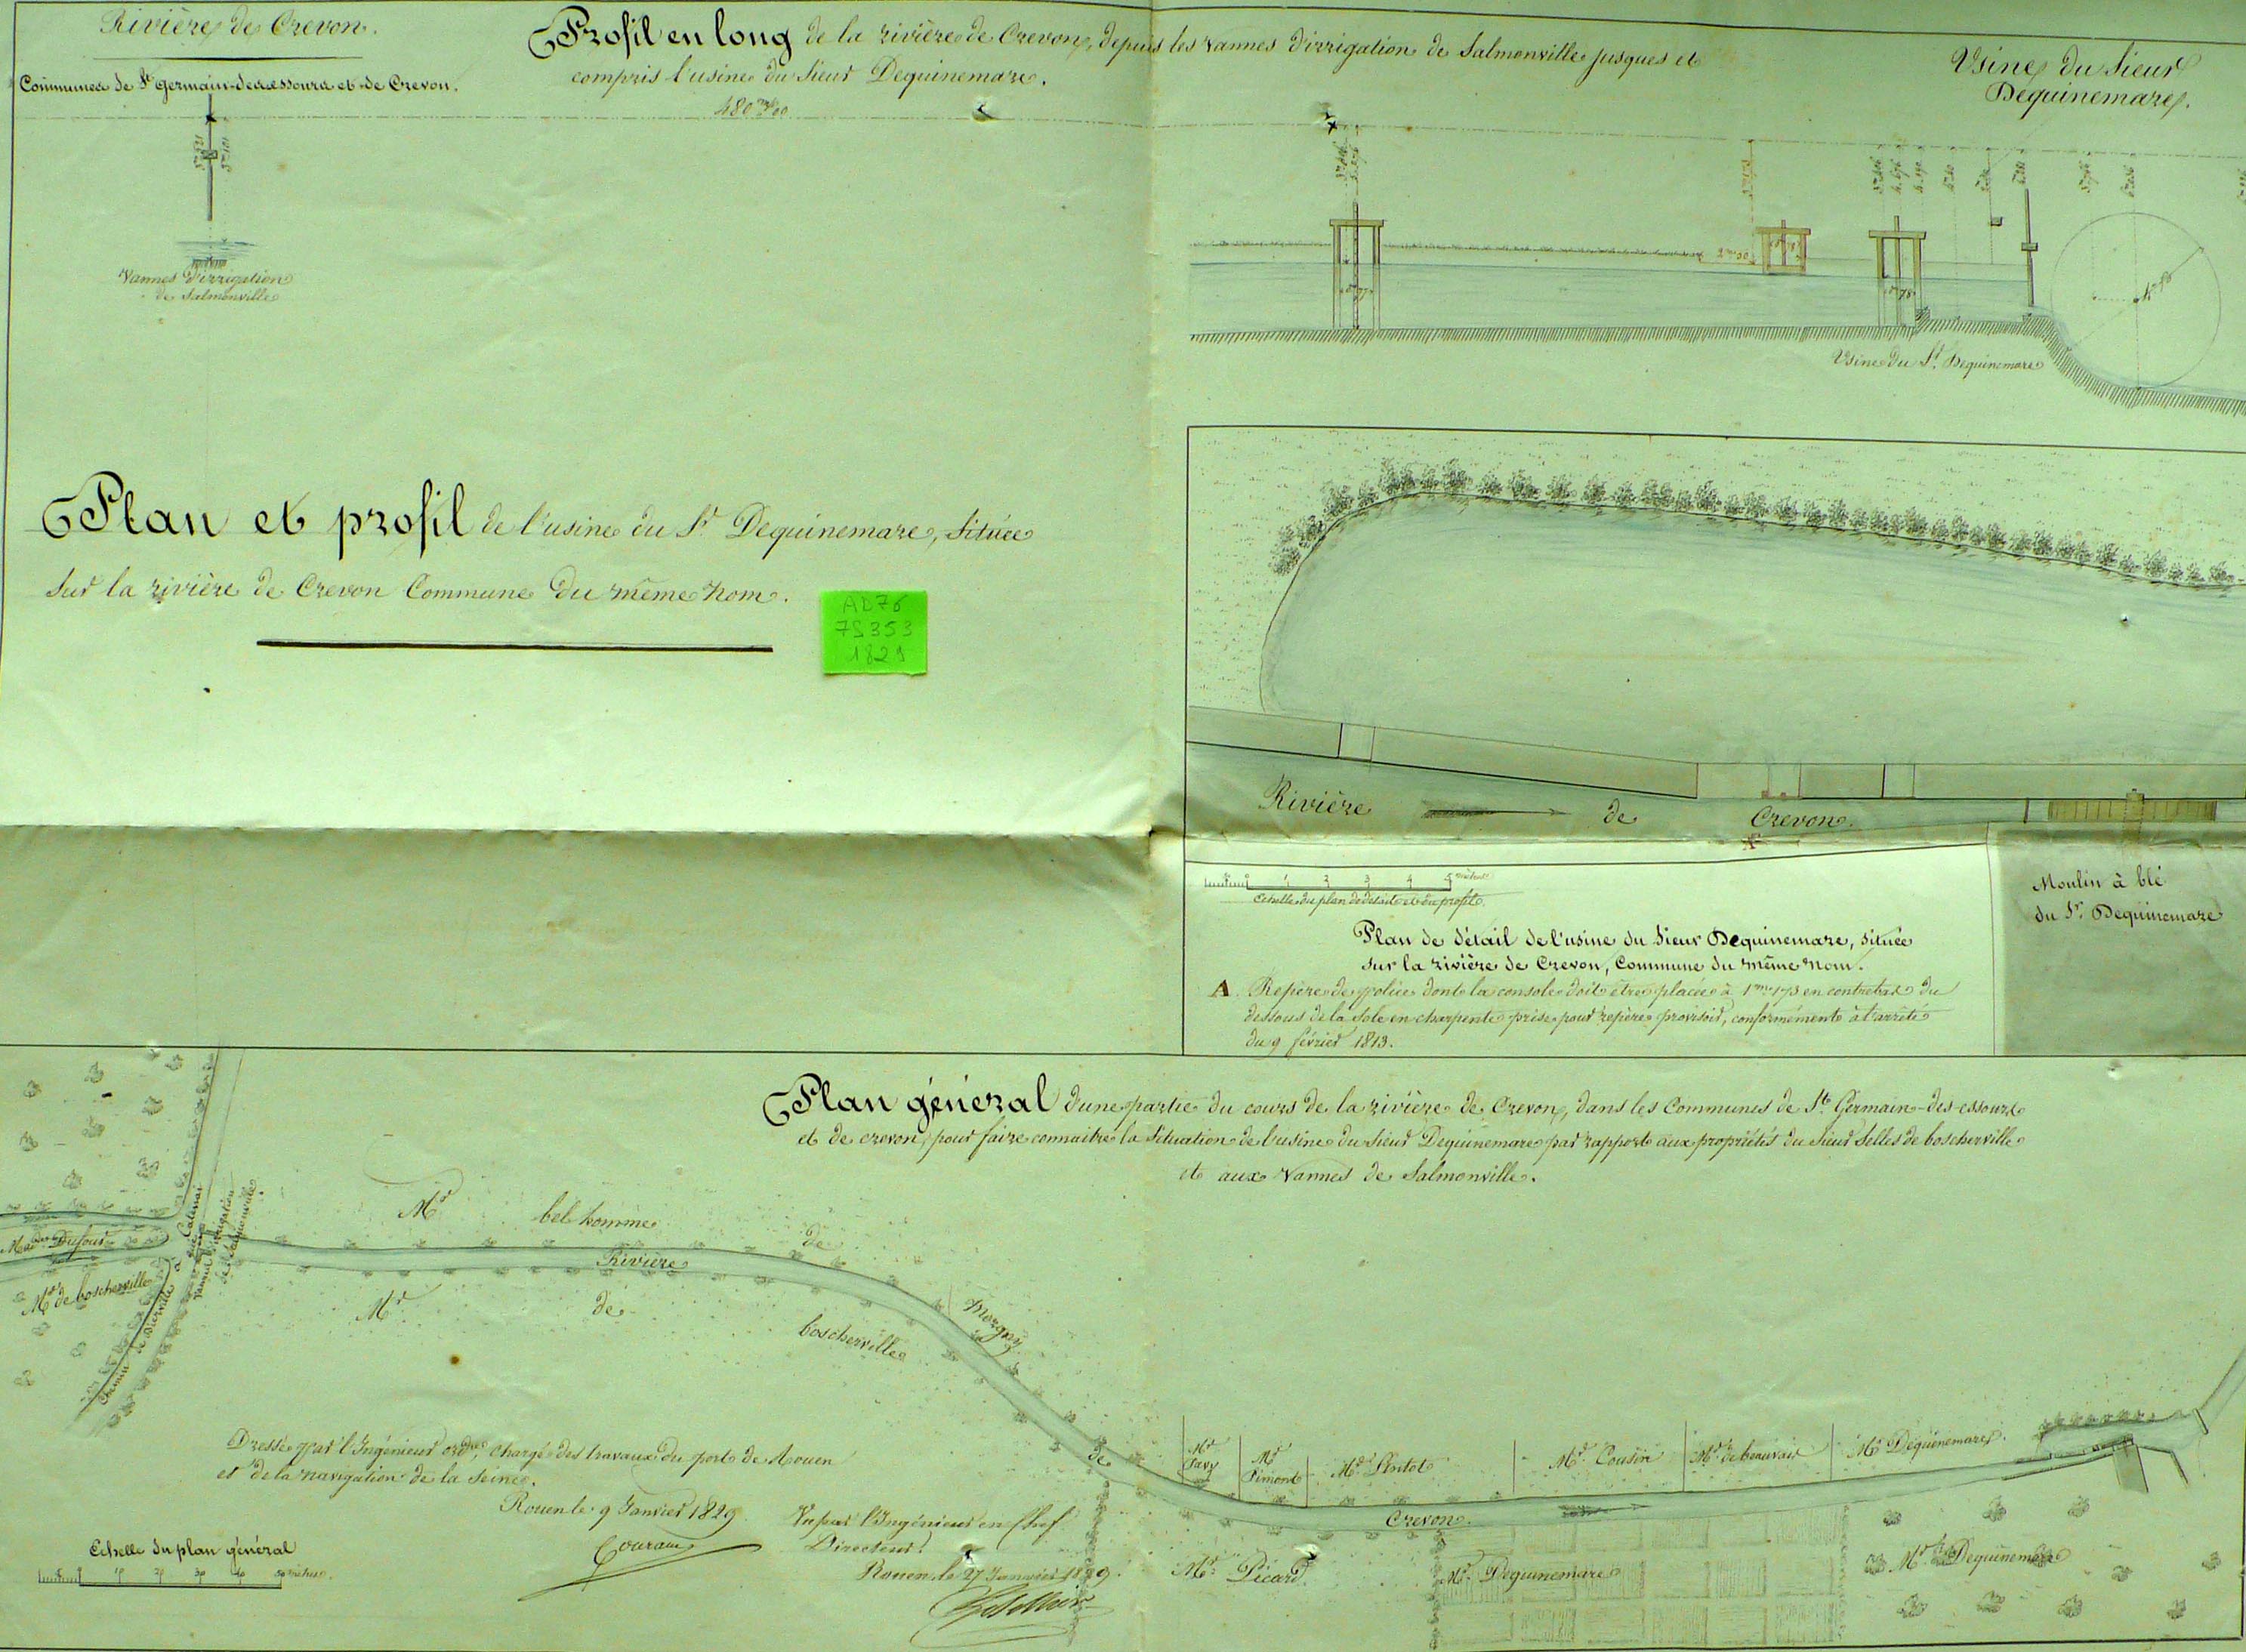 Rivière de Crevon.
Communes de St Germain-des-essours et de Crevon.
Profil en long de la rivière de Crevon, depuis les vannes d'irrigation de Salmonville jusques et
compris l'usine du Sieur Dequinemare.
480m00
Usine du Sieur
Dequinemare.
Vannes d'irrigation
de Salmonville
2m00
Usine du Sr. Dequinemare
Plan et profil de l'usine du Sr. Dequinemare, située
sur la rivière de Crevon Commune du même nom.
AD76
7S353
1829
Rivière de Crevon.
Moulin à blé
du Sr. Dequinemare
1 2 3 4 5 mètres
Echelle du plan de détail et du profil.
Plan de détail de l'usine du Sieur Dequinemare, située
sur la rivière de Crevon, Commune du même nom.
A Repère de police dont la console doit être placée à 1m173 en contrebas du
dessous de la sole en charpente prise pour repère provisoire, conformément à l'arrêté
du 9 février 1813.
Plan général d'une partie du cours de la rivière de Crevon, dans les Communes de St. Germain-des-essours
et de crevon, pour faire connaitre la situation de l'usine du Sieur Dequinemare par rapport aux propriétés du Sieur Selles de boscherville
et aux Vannes de Salmonville.
Dufour
Mr. de boscherville
Chemin de Bierville à
Vannes d'irrigation
de Salmonville.
Mr bel homme de Morgny
Rivière de Crevon.
Mr. de boscherville
Mr Savy
Mr Pimont
Mr. Pintot
Mr. Cousin
Mr. de beauvais
Mr Dequinemare.
Mr. Picard
Mr. Dequinemare
Mr. Dequinemare
Dressé par l'Ingénieur ordre. chargé des travaux du port de Rouen
et de la navigation de la Seine.
Rouen le 9 Janvier 1829.
Vu par l'Ingénieur en Chef
Directeur.
Rouen, le 27 Janvier 1829.
Echelle du plan général
10 20 30 40 50 mètres.